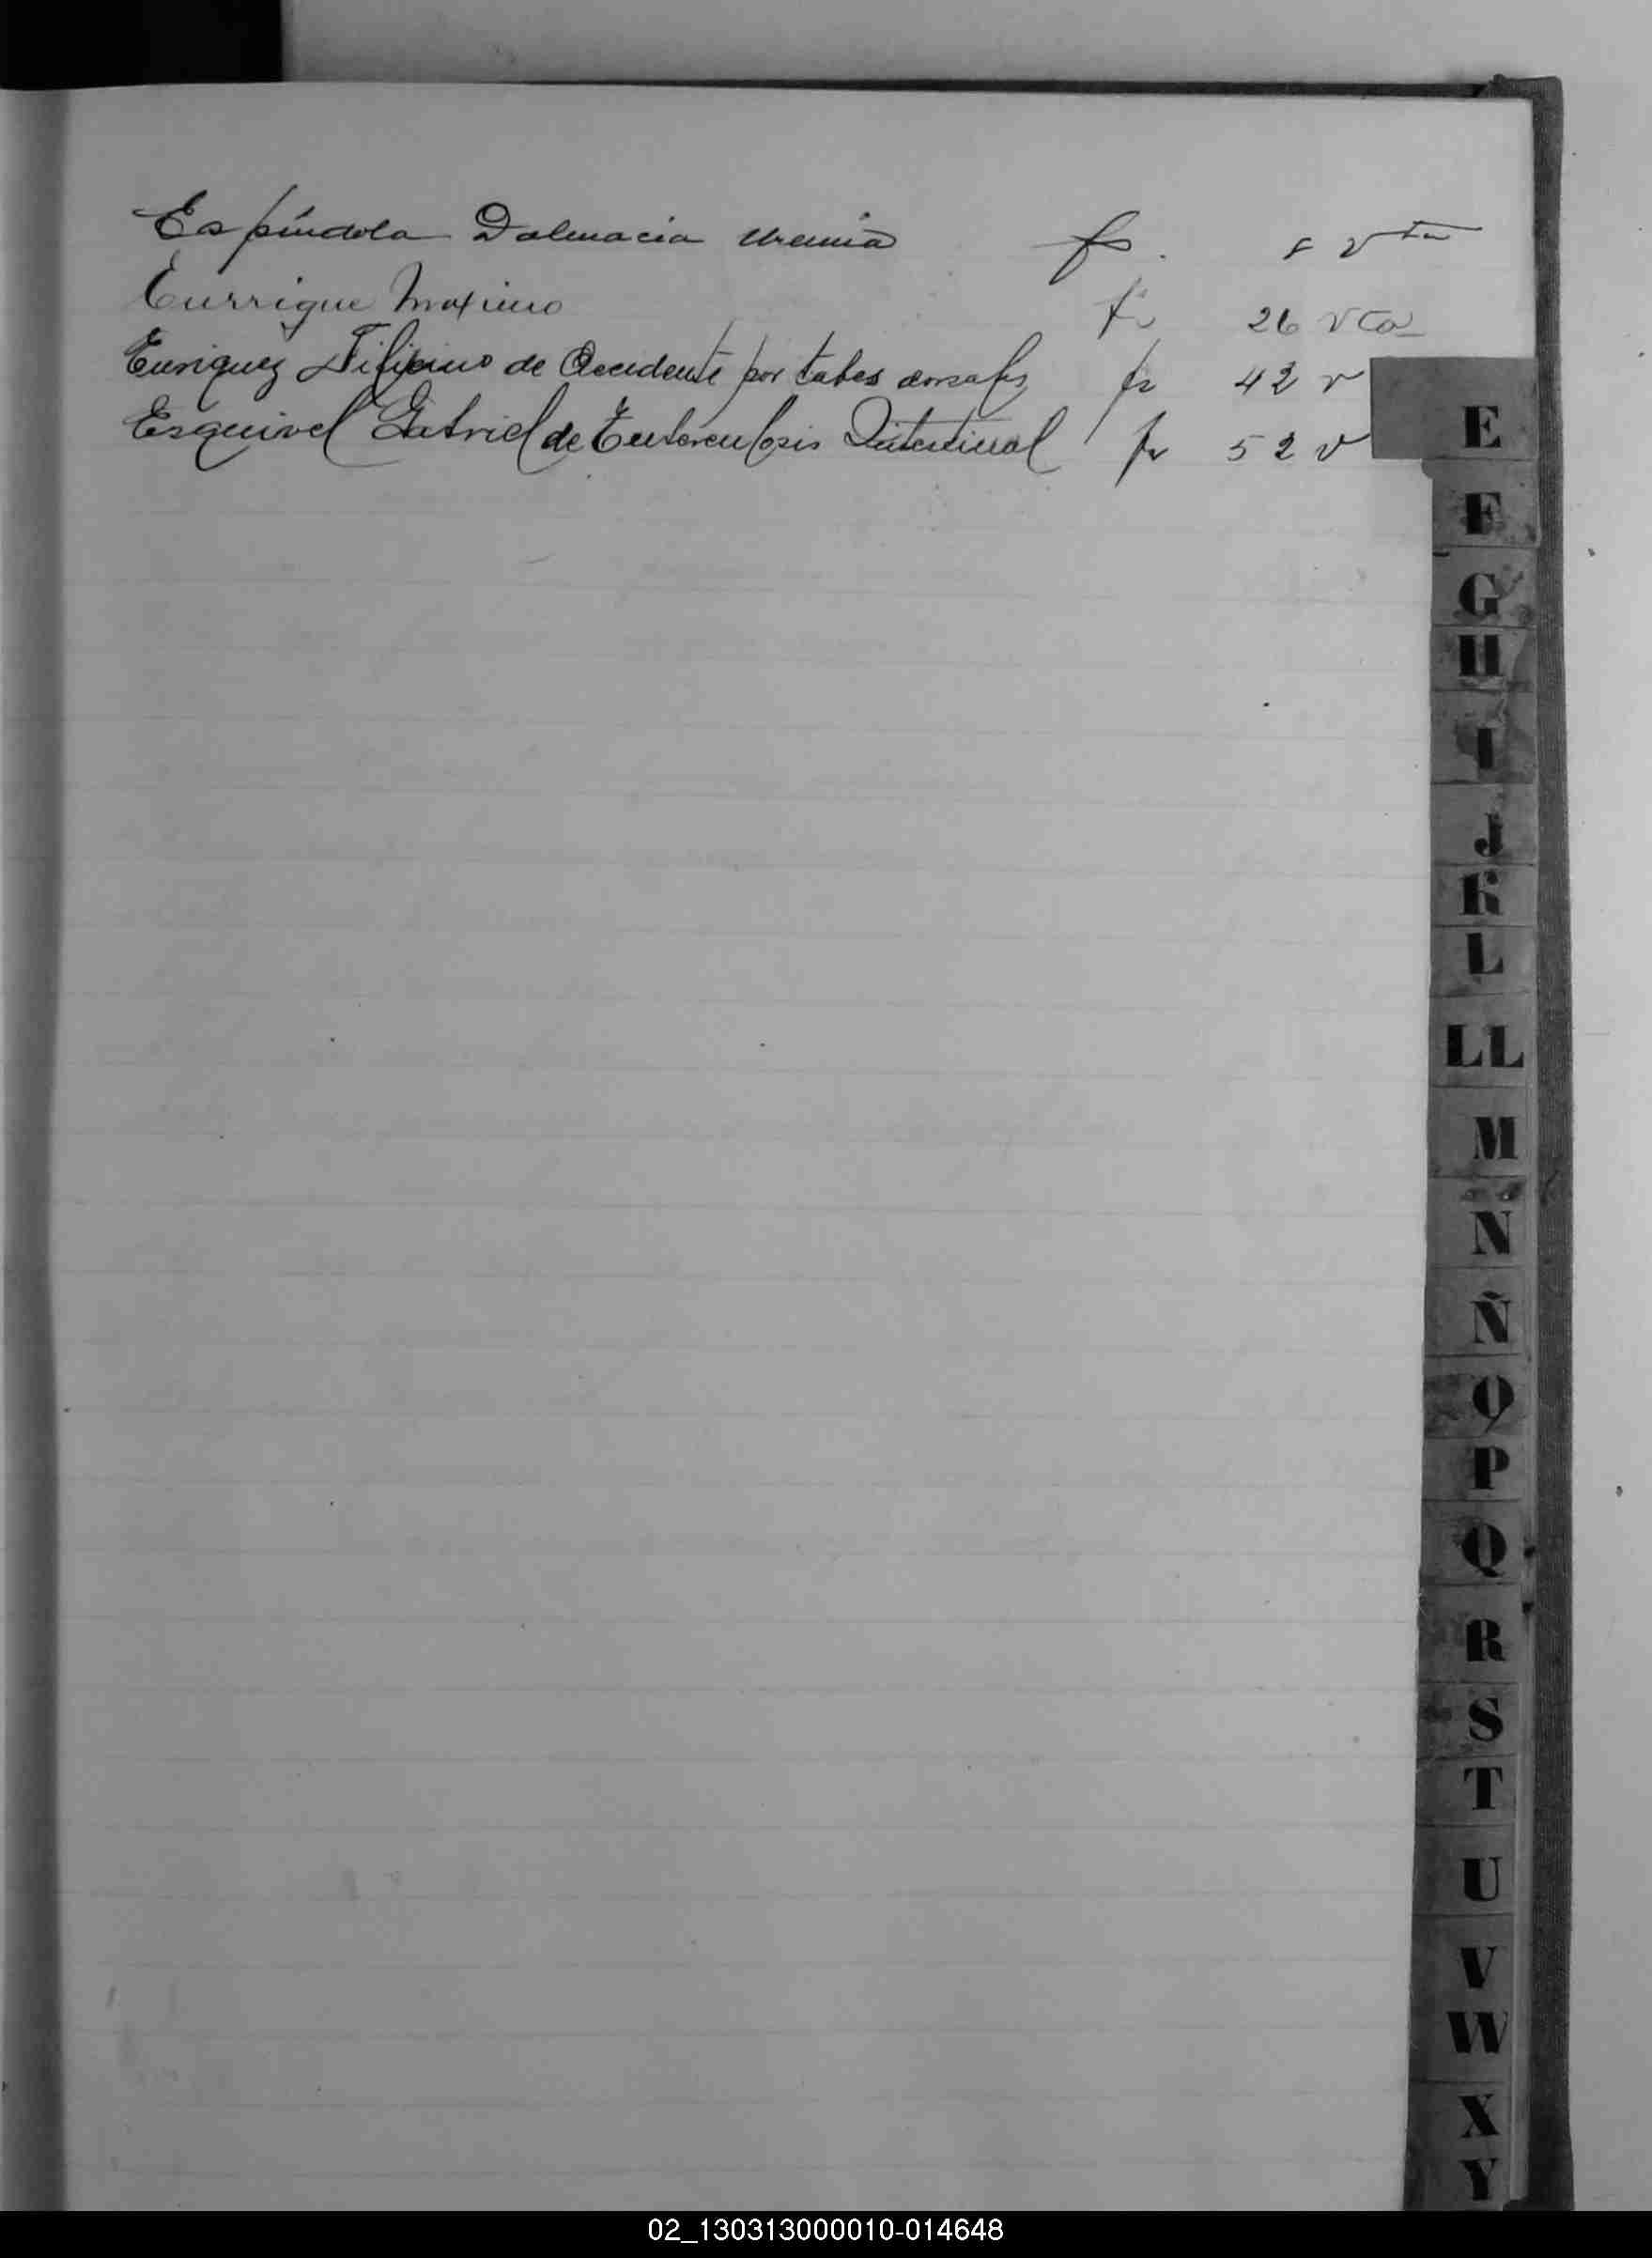 Espíndola Dalmacia Uremia fs. 8 vta
Enrrique Maximo fs 26 vta
Enriquez Filipino de Accidente por tabes dorsales fs 42 v
Esquivel Gabriel de Tuberculosis Intestinal fs 52 v
E
F
G
H
I
J
K
L
LL
M
N
Ñ
O
P
Q
R
S
T
U
V
W
X
Y
02_130313000010-014648